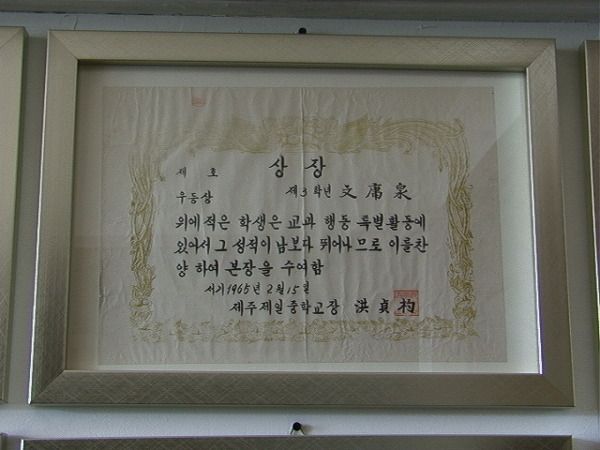 제 호
상장
우등상
제3학년 文庸泉
위에 적은 학생은 교과 행동 특별활동에
있어서 그 성적이 남보다 뛰어나므로 이를 찬
양하여 본장을 수여함
서기 1965년 2월 15일
제주제일중학교장 洪貞杓